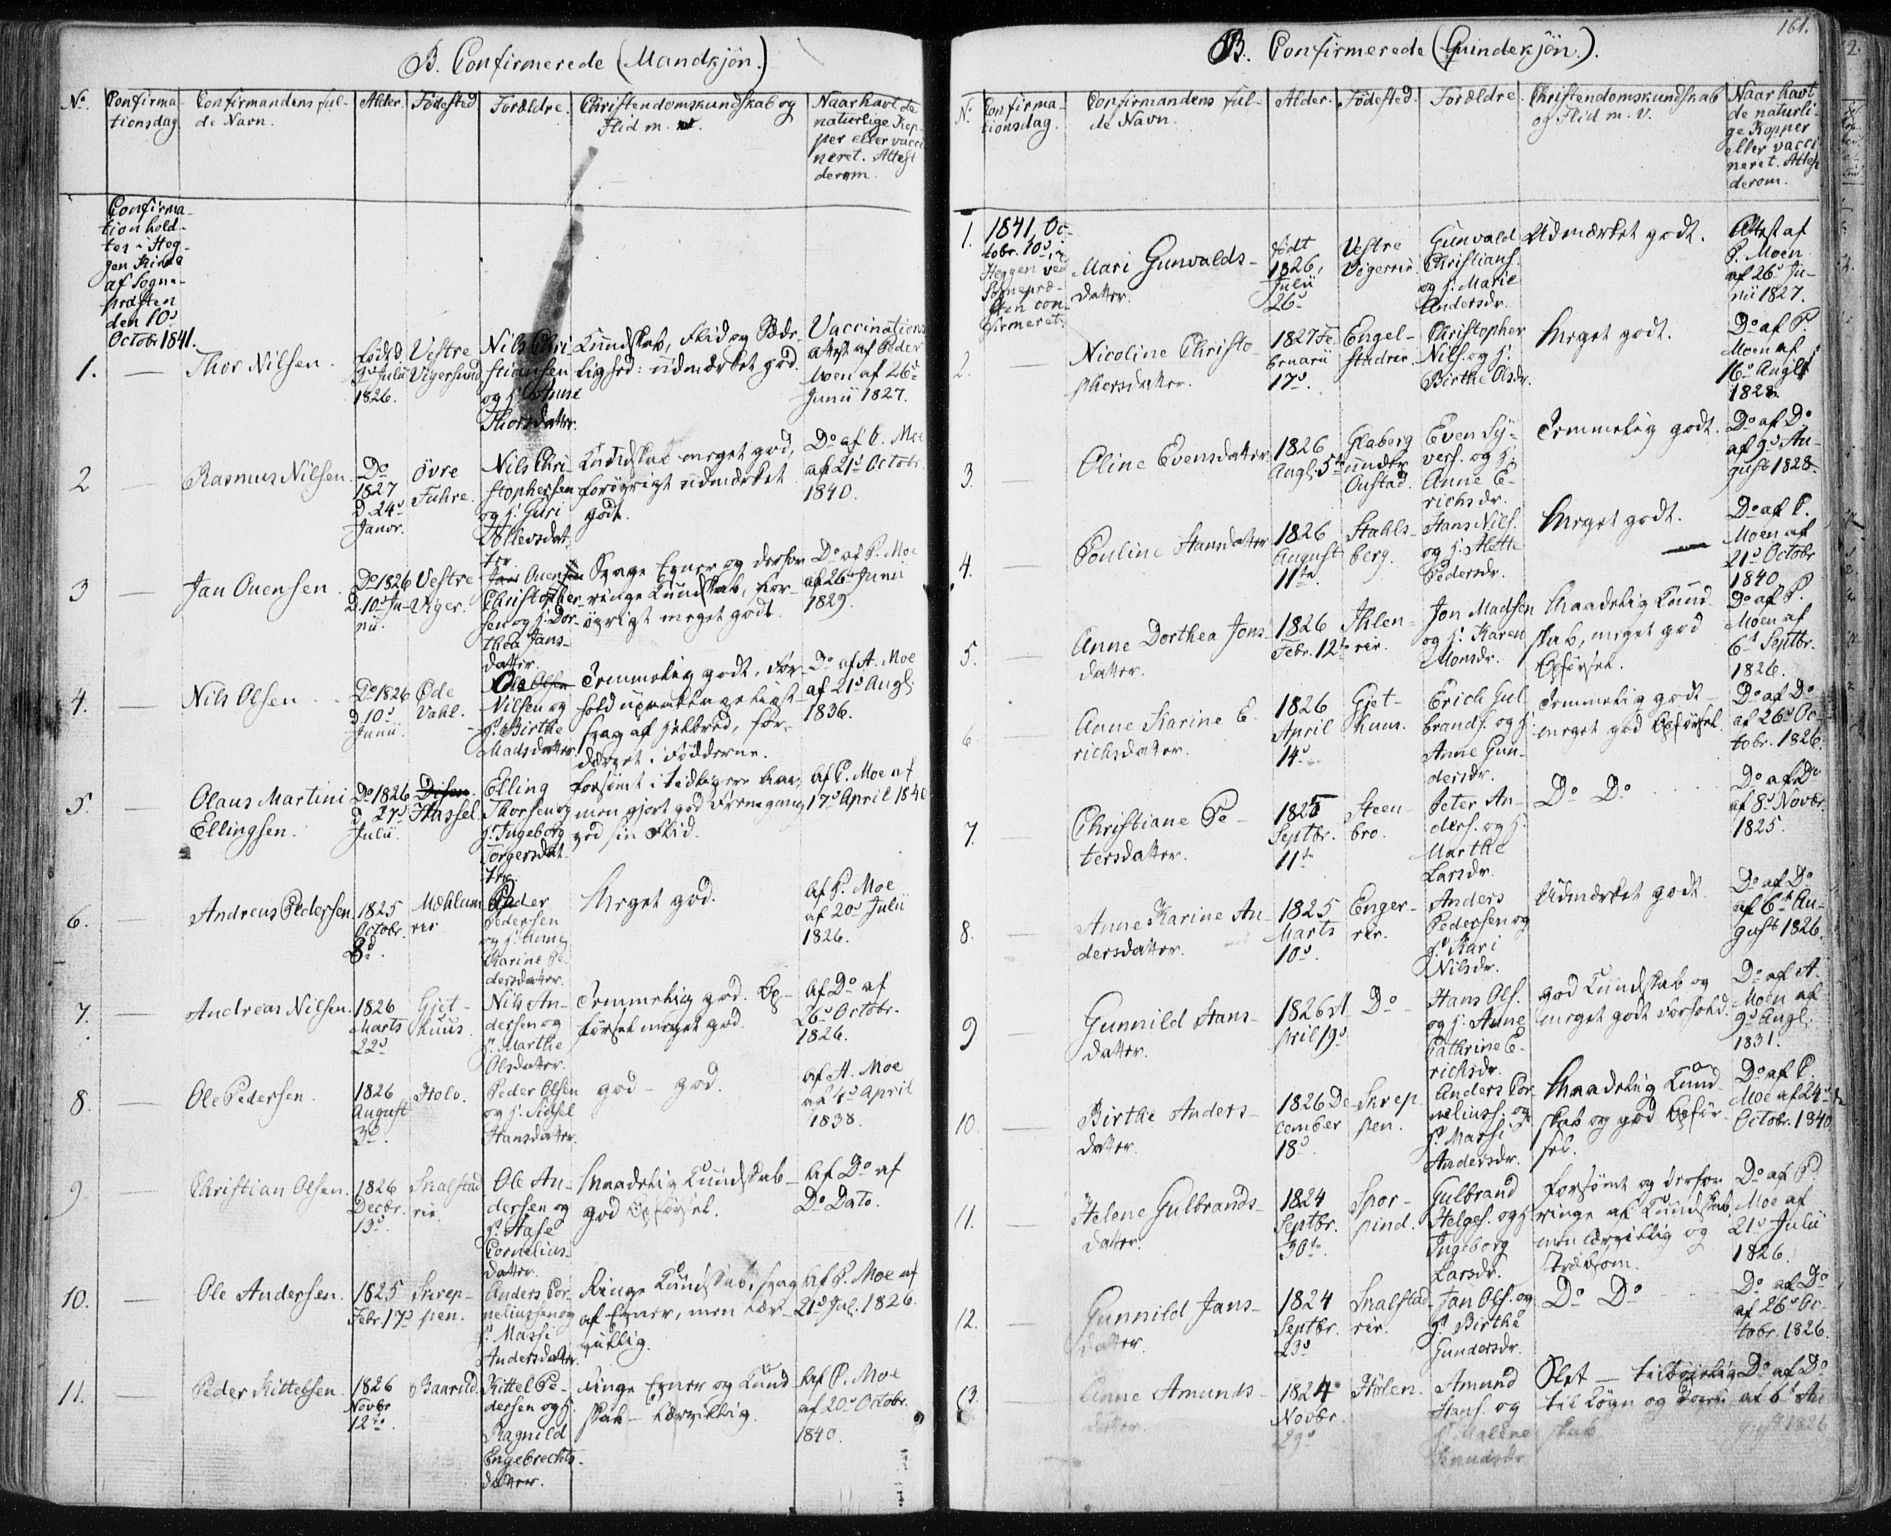 B. Confirmerede (Mandkjön.)
No.
Confirma-
tionsdag
Confirmandens ful-
de Navn.
Alder.
Födested
Forældre.
Christendomskundskab og
Flid m. v.
Naar havt de
naturlige Kop-
per eller vacci-
neret. Attest
derom.
Confirma-
tion hold-
ten i Heg-
gen Kirke
af Sogne-
præsten
den 10de
Octobr 1841.
1.
Thor Nilsen.
Födt d.
Julii
1826.
Vestre
Vigersund
Nils Chri-
stiansen
og h.
Thorsdatter.
Kundskab, Flid og Sæde-
lighed: udmærket god.
Vaccinations
attest af Peder
Moen af 26de
Junii 1827.
2
Rasmus Nilsen.
Do
1827
d. 24de
Janvr.
Övre
Fuhre.
Nils Chri-
stophersen
og h. Guri
Tollevsdat-
ter.
Kundskab meget god,
forövrigt udmærket
godt.
Do af P. Moe
af 21de Octobr.
1840.
3
Jan Ouensen.
Do 1826
d. 10de Ju-
nii.
Vestre
Viger.
Jan Ouensen
Christopher-
sen og h. Dor-
thea Jans-
datter.
Svage Evner og derfor
ringe Kundskab, for-
övrigt meget godt.
Do af P. Moe
af 26de Junii
1829.
4.
Nils Olsen.
Do 1826
d 10de
Junii.
Öde
Vahl.
Ole Olsen
Nilsen og
h. Birthe
Madsdatter.
Temmelig godt, For-
hold upaaklageligt
svag af Helbred, for-
dærvet i Födderne.
Do af A. Moe
af 21de Augl
1836.
5
Olaus Martini
Ellingsen.
Do 1826
d. 27de
Julii.
Disen
Hassel.
Elling
Thorsen og
h. Ingeborg
Torgersdat-
ter.
forsömt i tidligere Aar,
men gjort god Fremgang
ved sin Flid.
Af P. Moe af
17de April 1840
6.
Andreas Pedersen.
1825
Octobr.
8de.
Mæhlum
eie
Peder
Pedersen
og h. Anne
Karine Pe-
dersdatter.
Meget god.
Af P. Moe
af 20de Julii
1826.
7.
Andreas Nilsen.
1826
Marts
22de
Gjet-
huus.
Nils An-
dersen og
h. Marthe
Olsdatter.
Temmelig god. Op-
försel meget god.
Af Do af
26de Octobr.
1826.
8.
Ole Pedersen.
1826
August
3de.
Holv.
Peder Olsen
og h. Sidsel
Hansdatter.
god — god.
Af A. Moe
af 4de April
1838.
9
Christian Olsen.
1826
Decbr.
19de.
Snalstad
eie.
Ole An-
dersen og
h. Aase
Cornelius-
datter.
Maadelig Kundskab —
god Opförsel.
Af Do af
Do Dato.
10.
Ole Andersen.
1825
Febr. 17de
Skrep-
pen.
Anders Cor-
neliussen og
h. Massi
Andersdatter.
Ringe Kundskab, svag
af Evner, men lær-
villig.
Af P. Moe af
21de Jul. 1826.
11.
Peder Kittelsen.
1826
Novbr
12te.
Baarud.
Kittel Pe-
dersen og h.
Ragnild
Engebrechts-
datter.
Ringe Evner og Kund-
skab — lærvillig.
Af P. Moe
af 20de Octobr.
1840.
161.
B. Confirmerede (Qvindekjön.).
No.
Confirma-
tionsdag.
Confirmandens ful-
de Navn.
Alder.
Födested.
Forældre.
Christendomskundskab
og Flid m. v.
Naar havt
de naturli-
ge Kopper
eller vacci-
neret. Attest
derom.
1.
1841, Oc-
tobr. 10de, i
Heggen ved
Sognepræ-
sten con-
firmeret.
Mari Gunvalds-
datter.
födt
1826,
Julii
26de
Vestre
Vigereie.
Gunvald
Christians.
og h. Marie
Andersdr.
Udmærket godt.
Attest af
P. Moen
af 26de Ju-
nii 1827.
2.
Nicoline Christo-
phersdatter.
1827 Fe-
bruarii
17de.
Engel-
stadeie.
Christopher
Nils. og h.
Birthe Olsdr.
Meget godt.
Do af P.
Moen af
16de Augl
1828.
3.
Eline Evensdatter
1826
Augl. 5te
Glaberg
under
Oustad.
Even Sy-
vers. og h.
Anne E-
richsdr.
Temmelig godt.
Do af Do
af 9de Au-
gust 1828.
4.
Pouline Hansdatter
1826
August
11te.
Stahls-
berg.
Hans Nils.
og h. Alethe
Pedersdr.
Meget godt.
Do af P.
Moen af
21de Octobr
1840.
5.
Anne Dorthea Jons-
datter.
1826
Febr. 12te
Ihlen-
eie.
Jon Madsen
og h. Karen
Monsdr.
Maadelig Kund-
skab, meget god
Opförsel.
Do af P.
Moen af
6te Septbr.
1826.
6.
Anne Karine E-
richsdatter.
1826
April
14de.
Gjet-
huus.
Erich Gul-
brands. og h.
Anne Gun-
dersdr.
Temmelig godt —
meget god Opförsel.
Do af Do
af 26de Oc-
tobr. 1826.
7.
Christiane Pe-
tersdatter.
1825
Septbr.
11te.
Steen-
bro.
Peter An-
ders. og h.
Marthe
Larsdr.
Do Do
Do af Do
af 8de Novbr.
1825.
8.
Anne Karine An-
dersdatter.
1825
Marts
10de.
Enger-
eie.
Anders
Pedersen og
h. Kari
Nilsdr.
Udmærket godt
Do af Do
af 6te Au-
gust 1826.
9
Gunnild Hans-
datter.
1826 A-
pril 19de
Do
Hans Ols.
og h. Anne
Cathrine E-
richsdr.
god Kundskab og
meget godt Forhold.
Do af A.
Moen af
9de Augl.
1831.
10.
Birthe Anders-
datter.
1826 De-
cember
18de
Skrep-
pen.
Anders Cor-
nelius. og
h. Massi
Andersdr.
Maadelig Kund-
skab og god Opför-
sel.
Do af P.
Moe af 24de
Octobr. 1840
11.
Helene Gulbrands-
datter.
1824
Septbr.
30te.
Spor-
pind.
Gulbrand
Helges. og h.
Ingeborg
Larsdr.
Forsömt og derfor
ringe af Kundskab,
men lærvillig og
stræbsom.
Do af P.
Moe af
21de Julii
1826.
12.
Gunnild Jans-
datter.
1824
Septbr.
23de
Snalstad-
eie.
Jan Ols. og
h. Birthe
Gundersdr.
Do Do
Do af Do
af 26de Oc-
tobr. 1826.
13.
Anne Amunds-
datter.
1824
Novbr.
29de
Holen.
Amund
Hans. og
h. Malene
Knudsdr.
Slet — tilböielig
til Lögn og
skab
Do af Do
af 6te Au-
gust 1826